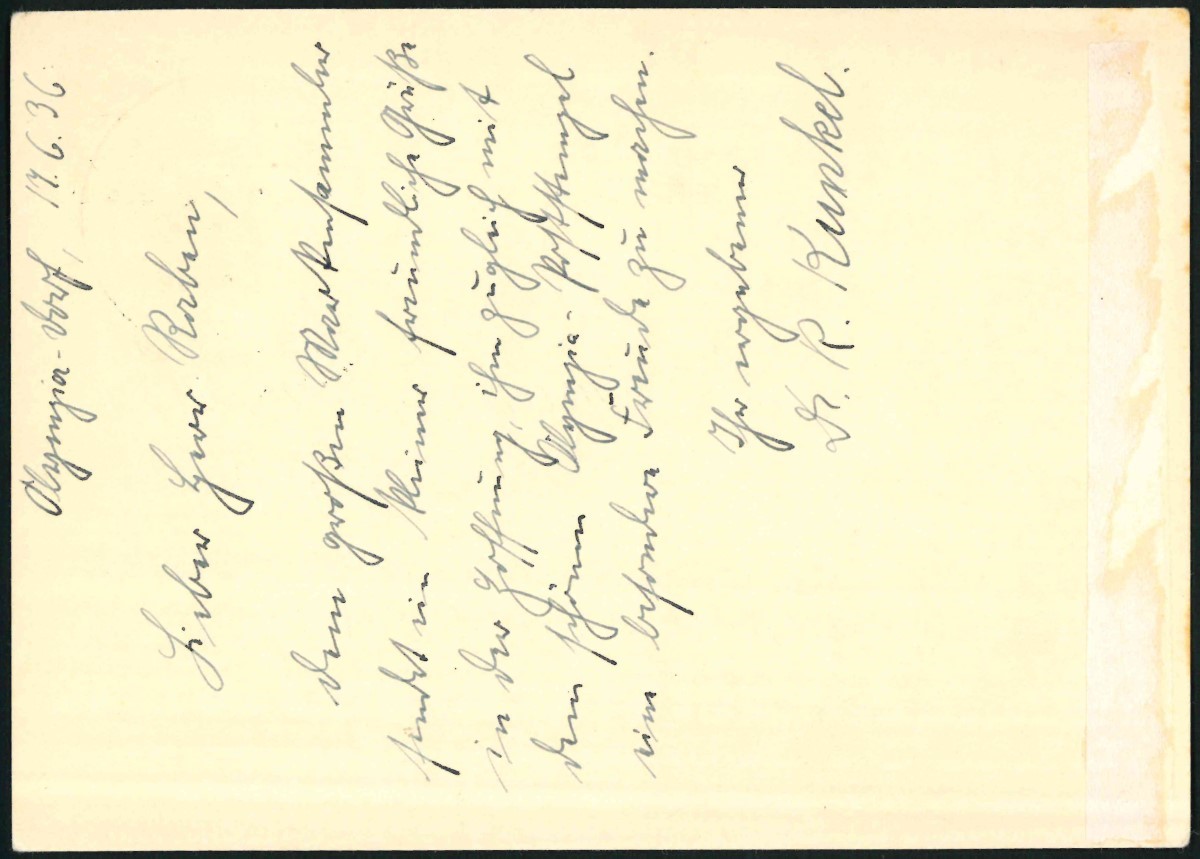 Olympia-Dorf, 17.6.36.
Lieber Herr Raben,
dem großen Markensammler
sendet ein kleiner freundliche Grüße
in der Hoffnung, ihm zugleich mit
dem schönen Olympia-Poststempel
eine besondere Freude zu machen.
Ihr ergebener
Dr. R. Kunkel.